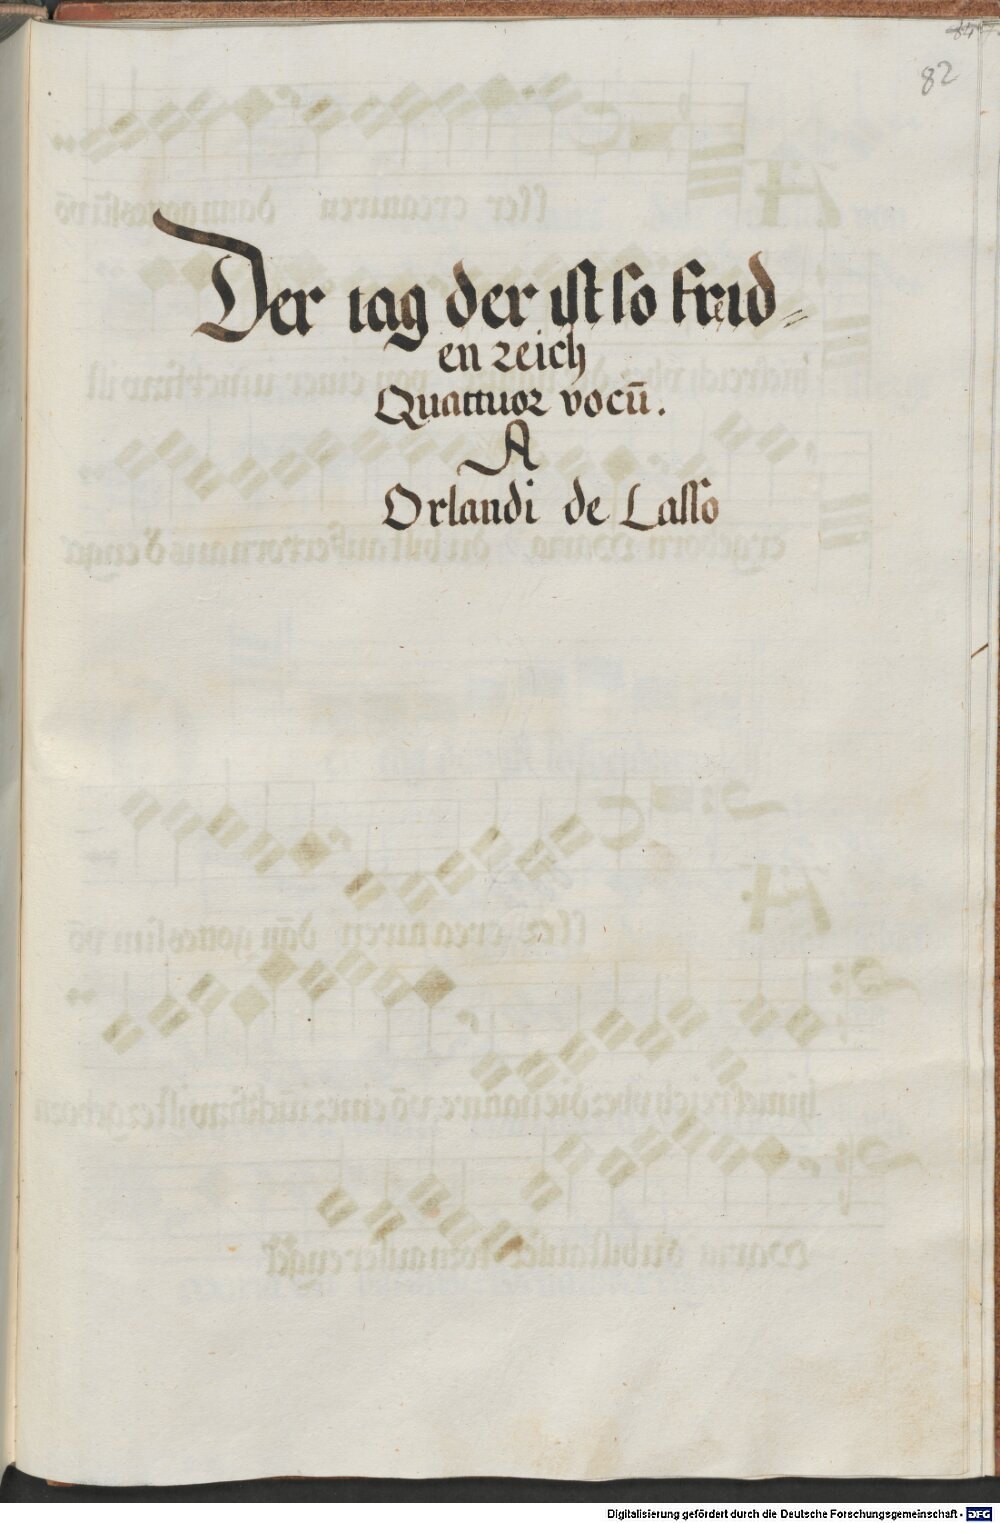 82
Der tag der ist so frid=
en reich
Quattuor vocū.
A
Orlandi de Lasso
Digitalisierung gefördert durch die Deutsche Forschungsgemeinschaft - DFG